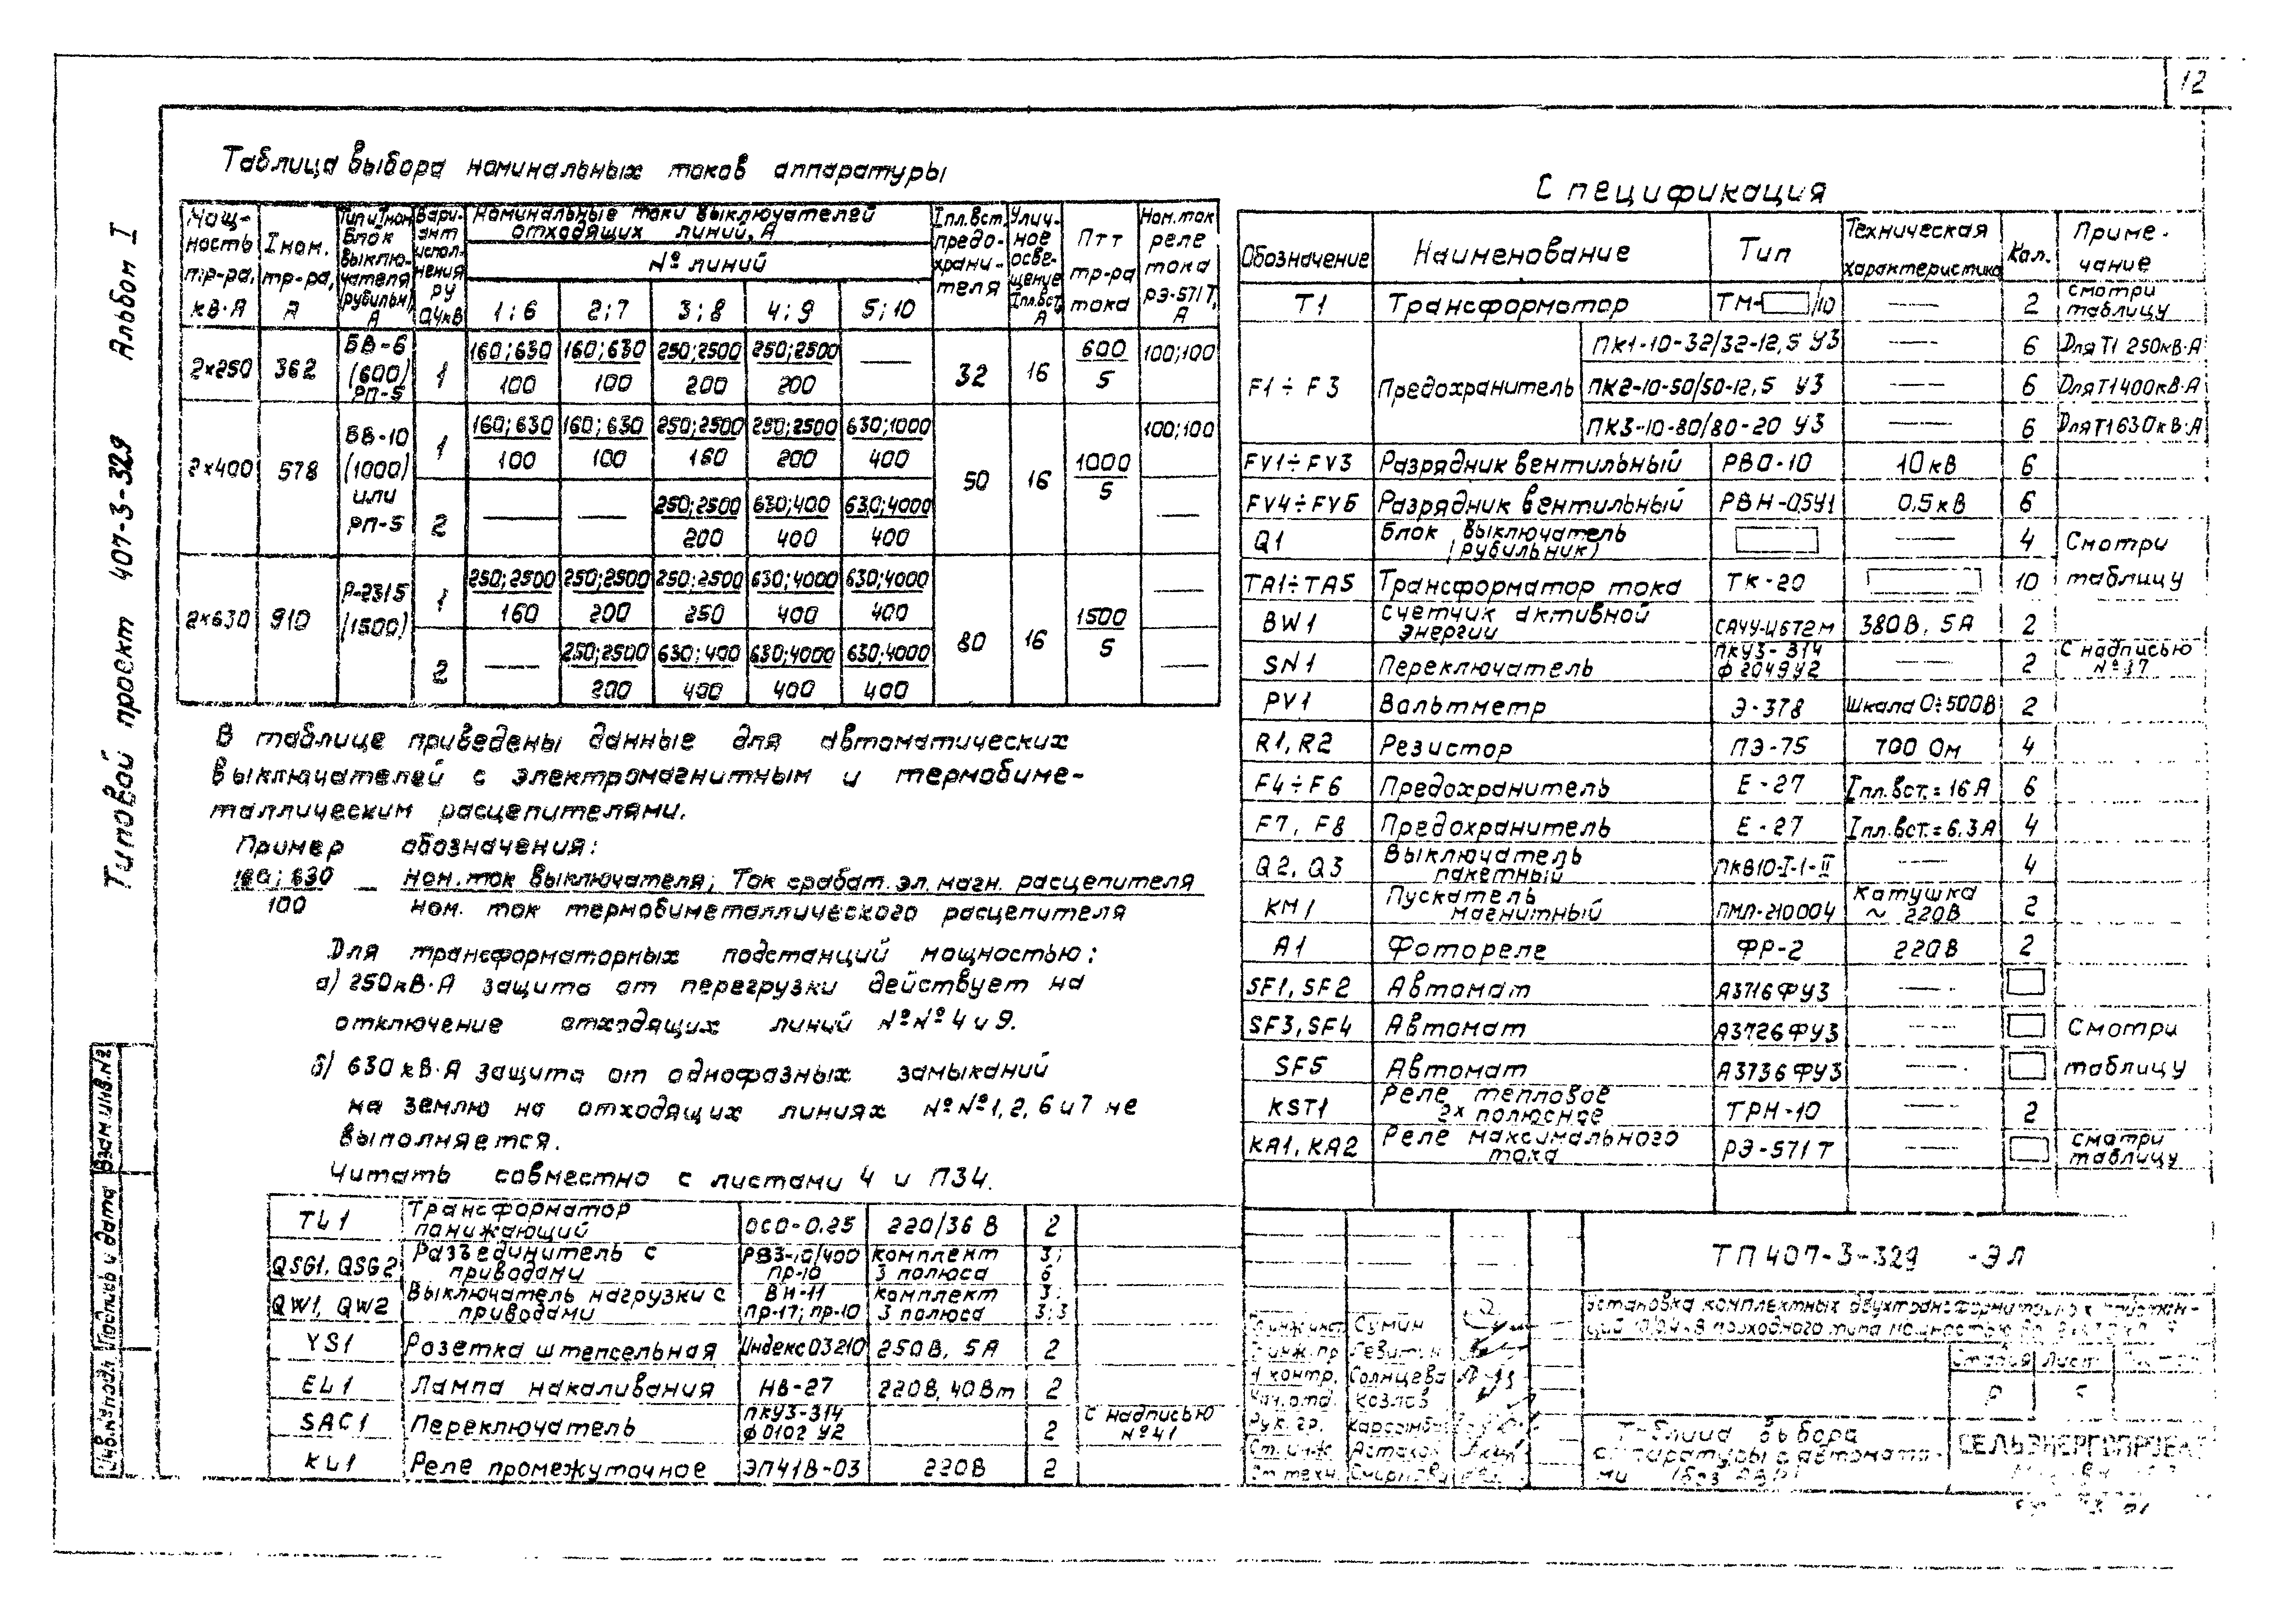 12
Альбом I
Типовой проект 407-3-329
Взам.инв.№
Подпись и дата
Инв.№подл.
Таблица выбора номинальных токов аппаратуры
Мощ-
ность
тр-ра,
кВ·А
Iном.
тр-ра,
А
Тип и Iном
блок
выклю-
чателя
(рубильн),
А
Вари-
ант
испол-
нения
РУ
0,4кВ
Номинальные токи выключателей
отходящих линий, А
№ линий
1;6 2;7 3;8 4;9 5;10
Iпл.вст.
предо-
храни-
теля
Улич-
ное
осве-
щение
Iпл.вст,
А
Птт
тр-ра
тока
Ном.ток
реле
тока
РЭ-571Т,
А
2×250 362 БВ-6 (600) РП-5 1 160;630/100 160;630/100 250;2500/200 250;2500/200 — 32 16 600/5 100;100
2×400 578 БВ-10 (1000) или РП-5 1 160;630/100 160;630/100 250;2500/160 250;2500/200 630;1000/400 50 16 1000/5 100;100
2 — — 250;2500/200 630;400/400 630;4000/400 —
2×630 910 Р-2315 (1500) 1 250;2500/160 250;2500/200 250;2500/250 630;4000/400 630;4000/400 80 16 1500/5 —
2 — 250;2500/200 630;400/400 630;4000/400 630;4000/400 —
В таблице приведены данные для автоматических
выключателей с электромагнитным и термобиме-
таллическим расцепителями.
Пример обозначения:
160; 630 — ном.ток выключателя; Ток срабат.эл.магн. расцепителя
100 ном. ток термобиметаллического расцепителя
Для трансформаторных подстанций мощностью:
а) 250кВ·А защита от перегрузки действует на
отключение отходящих линий №№4 и 9.
б) 630кВ·А защита от однофазных замыканий
на землю на отходящих линиях №№1,2,6 и 7 не
выполняется.
Читать совместно с листами 4 и ПЗ4.
TL1 Трансформатор понижающий ОСО-0.25 220/36 В 2
QSG1, QSG2 Разъединитель с приводами РВЗ-10/400 ПР-10 комплект 3 полюса 3; 6
QW1, QW2 Выключатель нагрузки с приводами ВН-11 ПР-17; ПР-10 комплект 3 полюса 3; 3;3
YS1 Розетка штепсельная Индекс 03210 250В, 5А 2
EL1 Лампа накаливания НВ-27 220В, 40Вт 2
SAC1 Переключатель ПКУ3-314 Ф0102 У2 2 С надписью №41
KL1 Реле промежуточное ЭП41В-03 220В 2
Спецификация
Обозначение Наименование Тип Техническая характеристика Кол. Приме-
чание
T1 Трансформатор ТМ- /10 — 2 смотри таблицу
F1÷F3 Предохранитель ПК1-10-32/32-12,5 У3 — 6 Для Т1 250кВ·А
ПК2-10-50/50-12,5 У3 — 6 Для Т1 400кВ·А
ПК3-10-80/80-20 У3 — 6 Для Т1 630кВ·А
FV1÷FV3 Разрядник вентильный РВО-10 10кВ 6
FV4÷FV6 Разрядник вентильный РВН-0,5У1 0,5кВ 6
Q1 Блок выключатель (рубильник) — 4 Смотри
TA1÷TA5 Трансформатор тока ТК-20 10 таблицу
BW1 Счетчик активной энергии САЧУ-И672М 380В, 5А 2
SN1 Переключатель ПКУ3-314 Ф2049У2 — 2 С надписью №37
PV1 Вольтметр Э-378 Шкала 0÷500В 2
R1, R2 Резистор ПЭ-75 700 Ом 4
F4÷F6 Предохранитель Е-27 Iпл.вст.=16А 6
F7, F8 Предохранитель Е-27 Iпл.вст.=6,3А 4
Q2, Q3 Выключатель пакетный ПКВ10-I-1-II — 4
KM1 Пускатель магнитный ПМЛ-210004 Катушка ~ 220В 2
A1 Фотореле ФР-2 220В 2
SF1, SF2 Автомат А3716ФУ3 —
SF3, SF4 Автомат А3726ФУ3 — Смотри
SF5 Автомат А3736ФУ3 — таблицу
KST1 Реле тепловое 2х полюсное ТРН-10 — 2
KA1, KA2 Реле максимального тока РЭ-571Т — смотри таблицу
ТП 407-3-329 -ЭЛ
Установка комплектных двухтрансформаторных подстан-
ций 10/0,4кВ проходного типа мощностью
Сумин
Левитин
Н контр. Солнцева
Нач.отд. Козлов
Рук. гр.
Ст. инж. Астахов
Ст техн. Смирнова
Стадия Лист
Р 5
Таблица выбора
аппаратуры с автомата-
ми (без АВР)
СЕЛЬЭНЕРГОПРОЕКТ